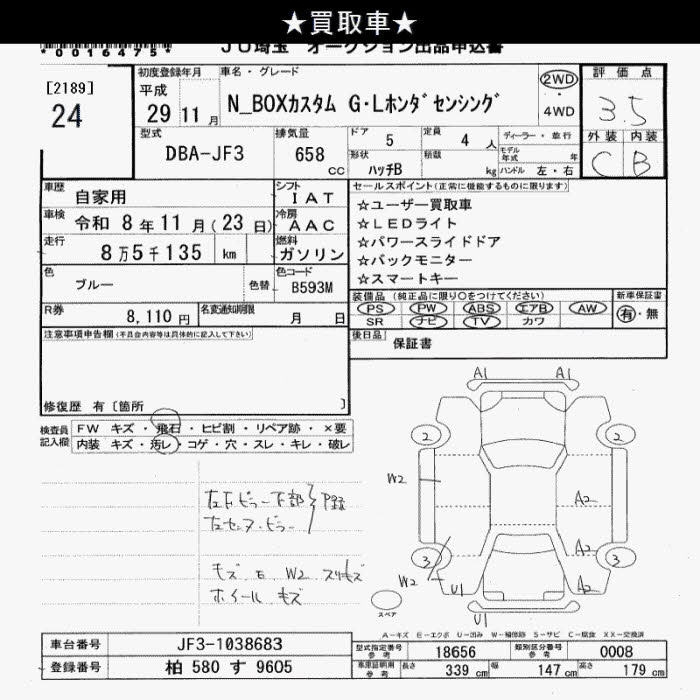 ★買取車★
*0016475*
JU埼玉 オークション出品申込書
[2189]
24
初度登録年月
平成
29 11月
車名・グレード
N_BOXカスタム G・Lホンダセンシング
2WD
・
4WD
評価点
3.5
外装 内装
C B
型式
DBA-JF3
排気量
658
cc
ドア
5
定員
4人
形状
ハッチB
積載
kg
ディーラー・並行
モデル年式 年
ハンドル 左・右
車歴
自家用
シフト
IAT
車検
令和 8年11月(23日)
冷房
AAC
走行
8万5千135 km
燃料
ガソリン
色
ブルー
色替
色コード
B593M
R券
8,110円
名変通知期限
月 日
セールスポイント(正常に機能するものに限ります)
☆ユーザー買取車
☆LEDライト
☆パワースライドドア
☆バックモニター
☆スマートキー
装備品 (純正品に限り○をつけてください)
PS PW ABS エアB AW
SR ナビ TV カワ
新車保証書
有・無
後日品
保証書
注意事項申告欄(不具合内容等は具体的に記入して下さい)
修復歴 有〔箇所 〕
検査員
記入欄
FW キズ・飛石・ヒビ割・リペア跡・×要
内装 キズ・汚レ・コゲ・穴・スレ・キレ・破レ
キズ E W2 スリキズ
ホイール キズ
A1 A1
2 2
W2
A2
A2
3 3
W2
U1
A2
U1
スペア
A-キズ E-エクボ U-凹み W-補修跡 S-サビ C-腐食 XX-交換済
車台番号 JF3-1038683
登録番号 柏 580 す 9605
型式指定番号 参考 18656 類別区分番号 参考 0008
車庫証明用 参考 長さ 339 cm 幅 147 cm 高さ 179 cm